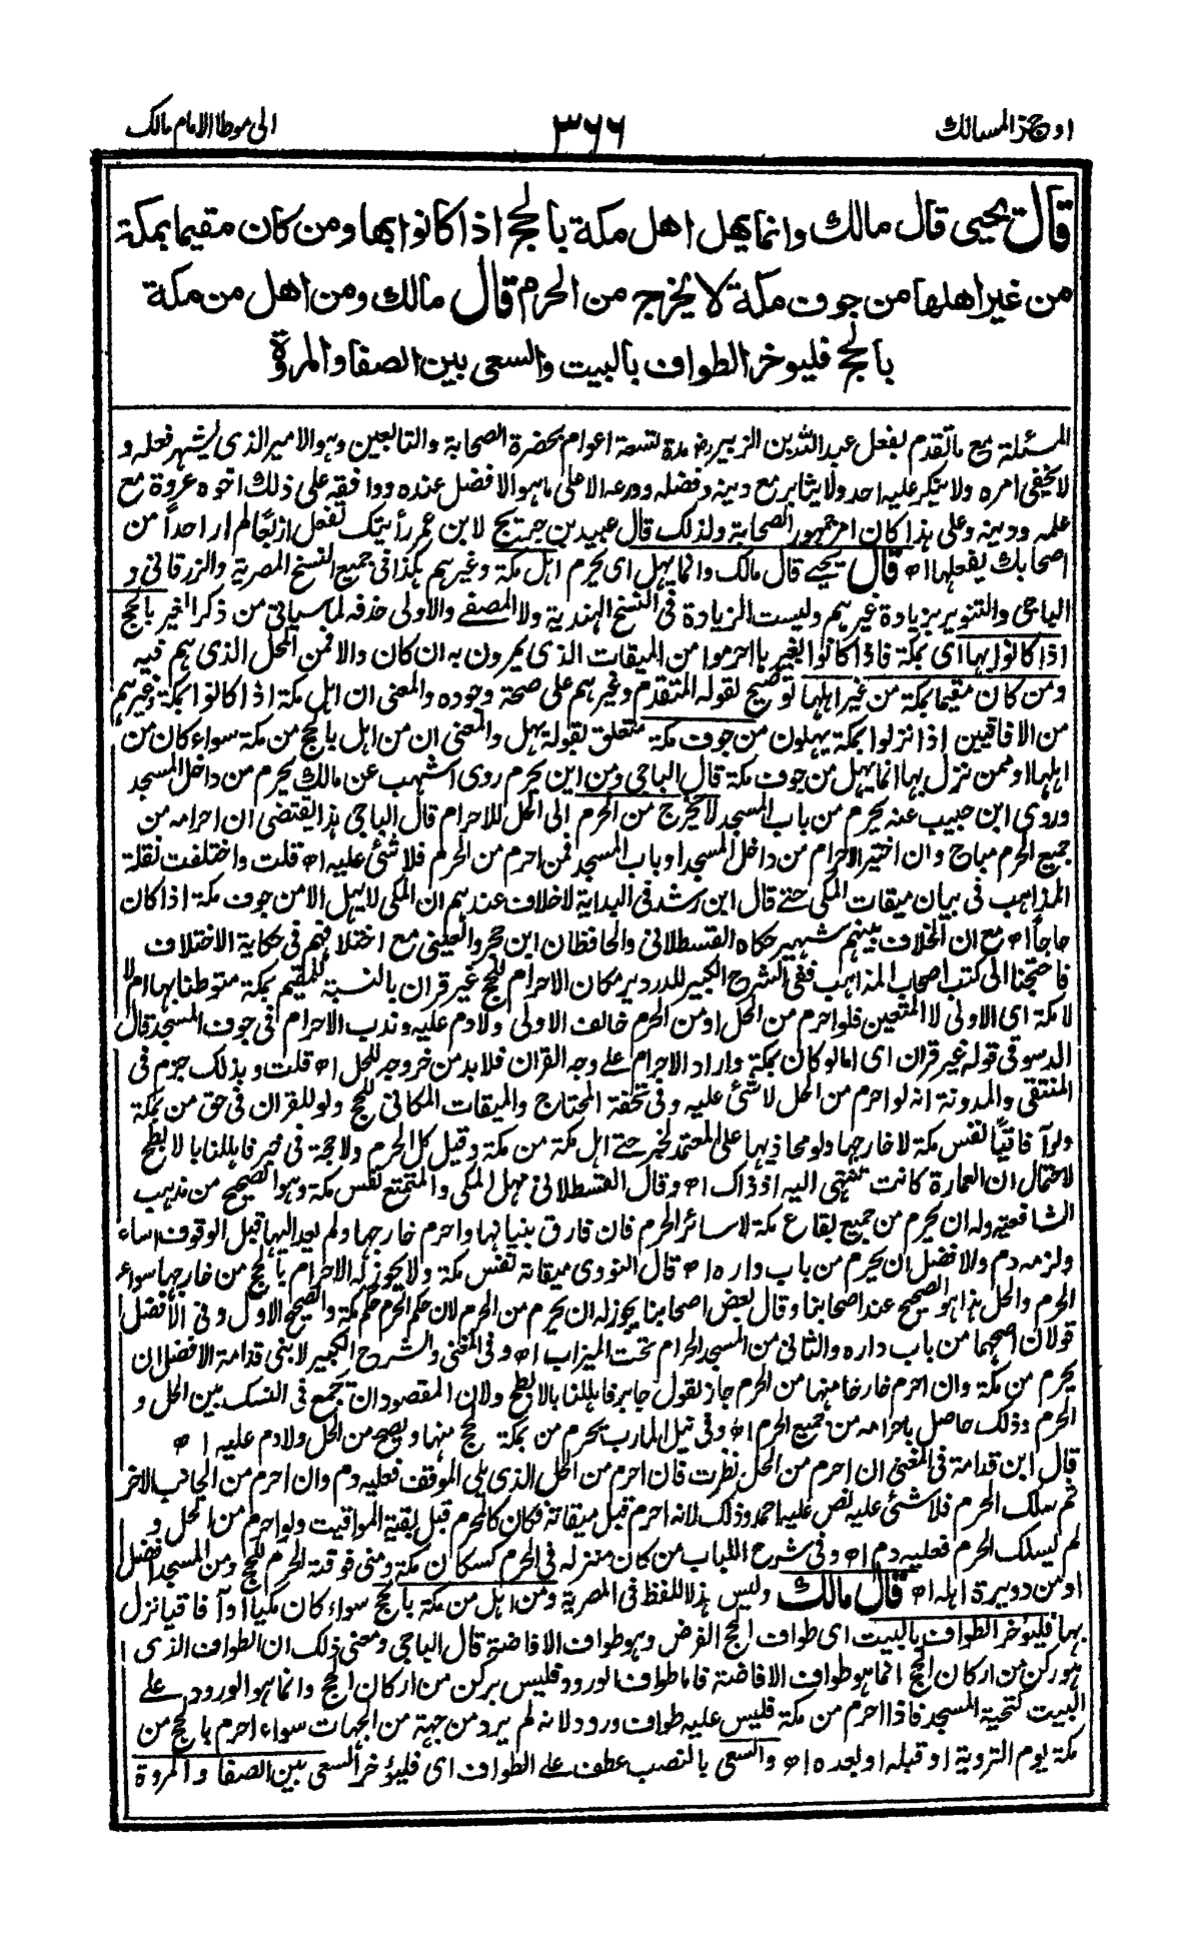 اوجز المسالك
٣٦٦
الى موطا الامام مالك
قال يحيى قال مالك وانما يهل اهل مكة بالحج اذا كانوا بها ومن كان مقيما بمكة
من غير اهلها من جوف مكة لا يخرج من الحرم قال مالك ومن اهل من مكة
بالحج فليؤخر الطواف بالبيت والسعى بين الصفا والمروة
المسئلة مع ما تقدم بفعل عبد الله بن الزبير رضـ مدة تسعة اعوام بحضرة الصحابة والتابعين وهو الامير الذى يشهر فعله و
لا يخفى امره ولا ينكر عليه احد ولا يثابر مع دينه وفضله وورعه الا على ما هو الافضل عنده ووافقه على ذلك اخوه عروة مع
علمه ودينه وعلى هذا كان امر جمهور الصحابة ولذلك قال عبيد بن جريج لابن عمر رأيتك تفعل اربعًا لم ار احداً من
اصحابك يفعلها اه قال يحيى قال مالك وانما يهل اى يحرم اهل مكة وغيرهم هكذا فى جميع النسخ المصرية والزرقانى و
الباجى والتنوير بزيادة غيرهم وليست الزيادة فى النسخ الهندية ولا المصفى والاولى حذفه لما سيأتى من ذكر الغير بالحج
اذا كانوا بها اى بمكة فاذا كانوا بغيرها احرموا من الميقات الذى يمرون به ان كان والا فمن المحل الذى هم فيه
ومن كان مقيما بمكة من غير اهلها توضيح لقوله المتقدم وغيرهم على صحة وجوده والمعنى ان اهل مكة اذا كانوا بمكة وغيرهم
من الافاقيين اذا نزلوا بمكة يهلون من جوف مكة متعلق بقوله يهل والمعنى ان من اهل بالحج من مكة سواء كان من
اهلها او ممن نزل بها انما يهل من جوف مكة قال الباجى ومن اين يحرم روى اشهب عن مالك يحرم من داخل المسجد
وروى ابن حبيب عنه يحرم من باب المسجد لا يخرج من الحرم الى الحل للاحرام قال الباجى هذا يقتضى ان احرامه من
جميع الحرم مباح وان اختير الاحرام من داخل المسجد او باب المسجد فمن احرم من الحرم فلا شئ عليه اه قلت واختلفت نقلة
المذاهب فى بيان ميقات المكى حتى قال ابن رشد فى البداية لا خلاف عندهم ان المكى لا يهل الا من جوف مكة اذا كان
حاجاً اه مع ان الخلاف بينهم شهير حكاه القسطلانى والحافظان ابن حجر والعينى مع اختلافهم فى حكاية الاختلاف
فاحتجنا الى كتب اصحاب المذاهب ففى الشرح الكبير للدردير مكان الاحرام للحج غير قران بالنسبة للمقيم بمكة متوطنا بها ام لا
لا مكة اى الاولى لا المتعين فلو احرم من الحل او من الحرم خالف الاولى ولا دم عليه وندب الاحرام فى جوف المسجد قال
الدسوقى قوله غير قران اى اما لو كان بمكة واراد الاحرام على وجه القران فلا بد من خروجه للحل اه قلت وبذلك جزم فى
المنتقى والمدونة انه لو احرم من الحل لا شئ عليه وفى تحفة المحتاج والميقات المكانى للحج ولو للقران فى حق من بمكة
ولو آفاقياً نفس مكة لا خارجها ولو محاذيها على المعتمد لخبر حتى اهل مكة من مكة وقيل كل الحرم ولا حجة فى خبر فاهللنا بالابطح
لاحتمال ان العمارة كانت تنتهى اليه اذ ذاك اه وقال القسطلانى مهل المكى والمتمتع نفس مكة وهو الصحيح من مذهب
الشافعية وله ان يحرم من جميع بقاع مكة لا سائر الحرم فان فارق بنيانها واحرم خارجها ولم يعد اليها قبل الوقوف اساء
ولزمه دم والافضل ان يحرم من باب داره اه قال النووى ميقاته نفس مكة ولا يجوز له الاحرام بالحج من خارجها سواء
الحرم والحل هذا هو الصحيح عند اصحابنا وقال بعض اصحابنا يجوز له ان يحرم من الحرم لان حكم الحرم حكم مكة والصحيح الاول وفى الافضل
قولان اصحهما من باب داره والثانى من المسجد الحرام تحت الميزاب اه وفى المغنى والشرح الكبير لابنى قدامة الافضل ان
يحرم من مكة وان احرم خارجا منها من الحرم جاز لقول جابر فاهللنا بالابطح ولان المقصود ان يجمع فى النسك بين الحل و
الحرم وذلك حاصل باحرامه من جميع الحرم اه وفى نيل المارب يحرم من بمكة لحج منها ويصح من الحل ولا دم عليه اه
قال ابن قدامة فى المغنى ان احرم من الحل نظرت فان احرم من الحل الذى يلى الموقف فعليه دم وان احرم من الجانب الاخر
ثم سلك الحرم فلا شئ عليه نص عليه احمد وذلك لانه احرم قبل ميقاته فكان كالمحرم قبل بقية المواقيت ولو احرم من الحل و
لم يسلك الحرم فعليه دم اه وفى شرح اللباب من كان منزله فى الحرم كسكان مكة ومنى فوقته الحرم للحج ومن المسجد افضل
او من دويرة اهله اه قال مالك وليس هذا اللفظ فى المصرية ومن اهل من مكة بالحج سواء كان مكيا او آفاقيا نزل
بها فليؤخر الطواف بالبيت اى طواف الحج الفرض وهو طواف الافاضة قال الباجى ومعنى ذلك ان الطواف الذى ا
هو ركن من اركان الحج انما هو طواف الافاضة فاما طواف الورود فليس بركن من اركان الحج وانما هو الورود على
البيت كتحية المسجد فاذا احرم من مكة فليس عليه طواف ورود لانه لم يرد من جهة من الجهات سواء احرم بالحج من
مكة يوم التروية او قبله او بعده اه والسعى بالنصب عطف على الطواف اى فليؤخر السعى بين الصفا والمروة